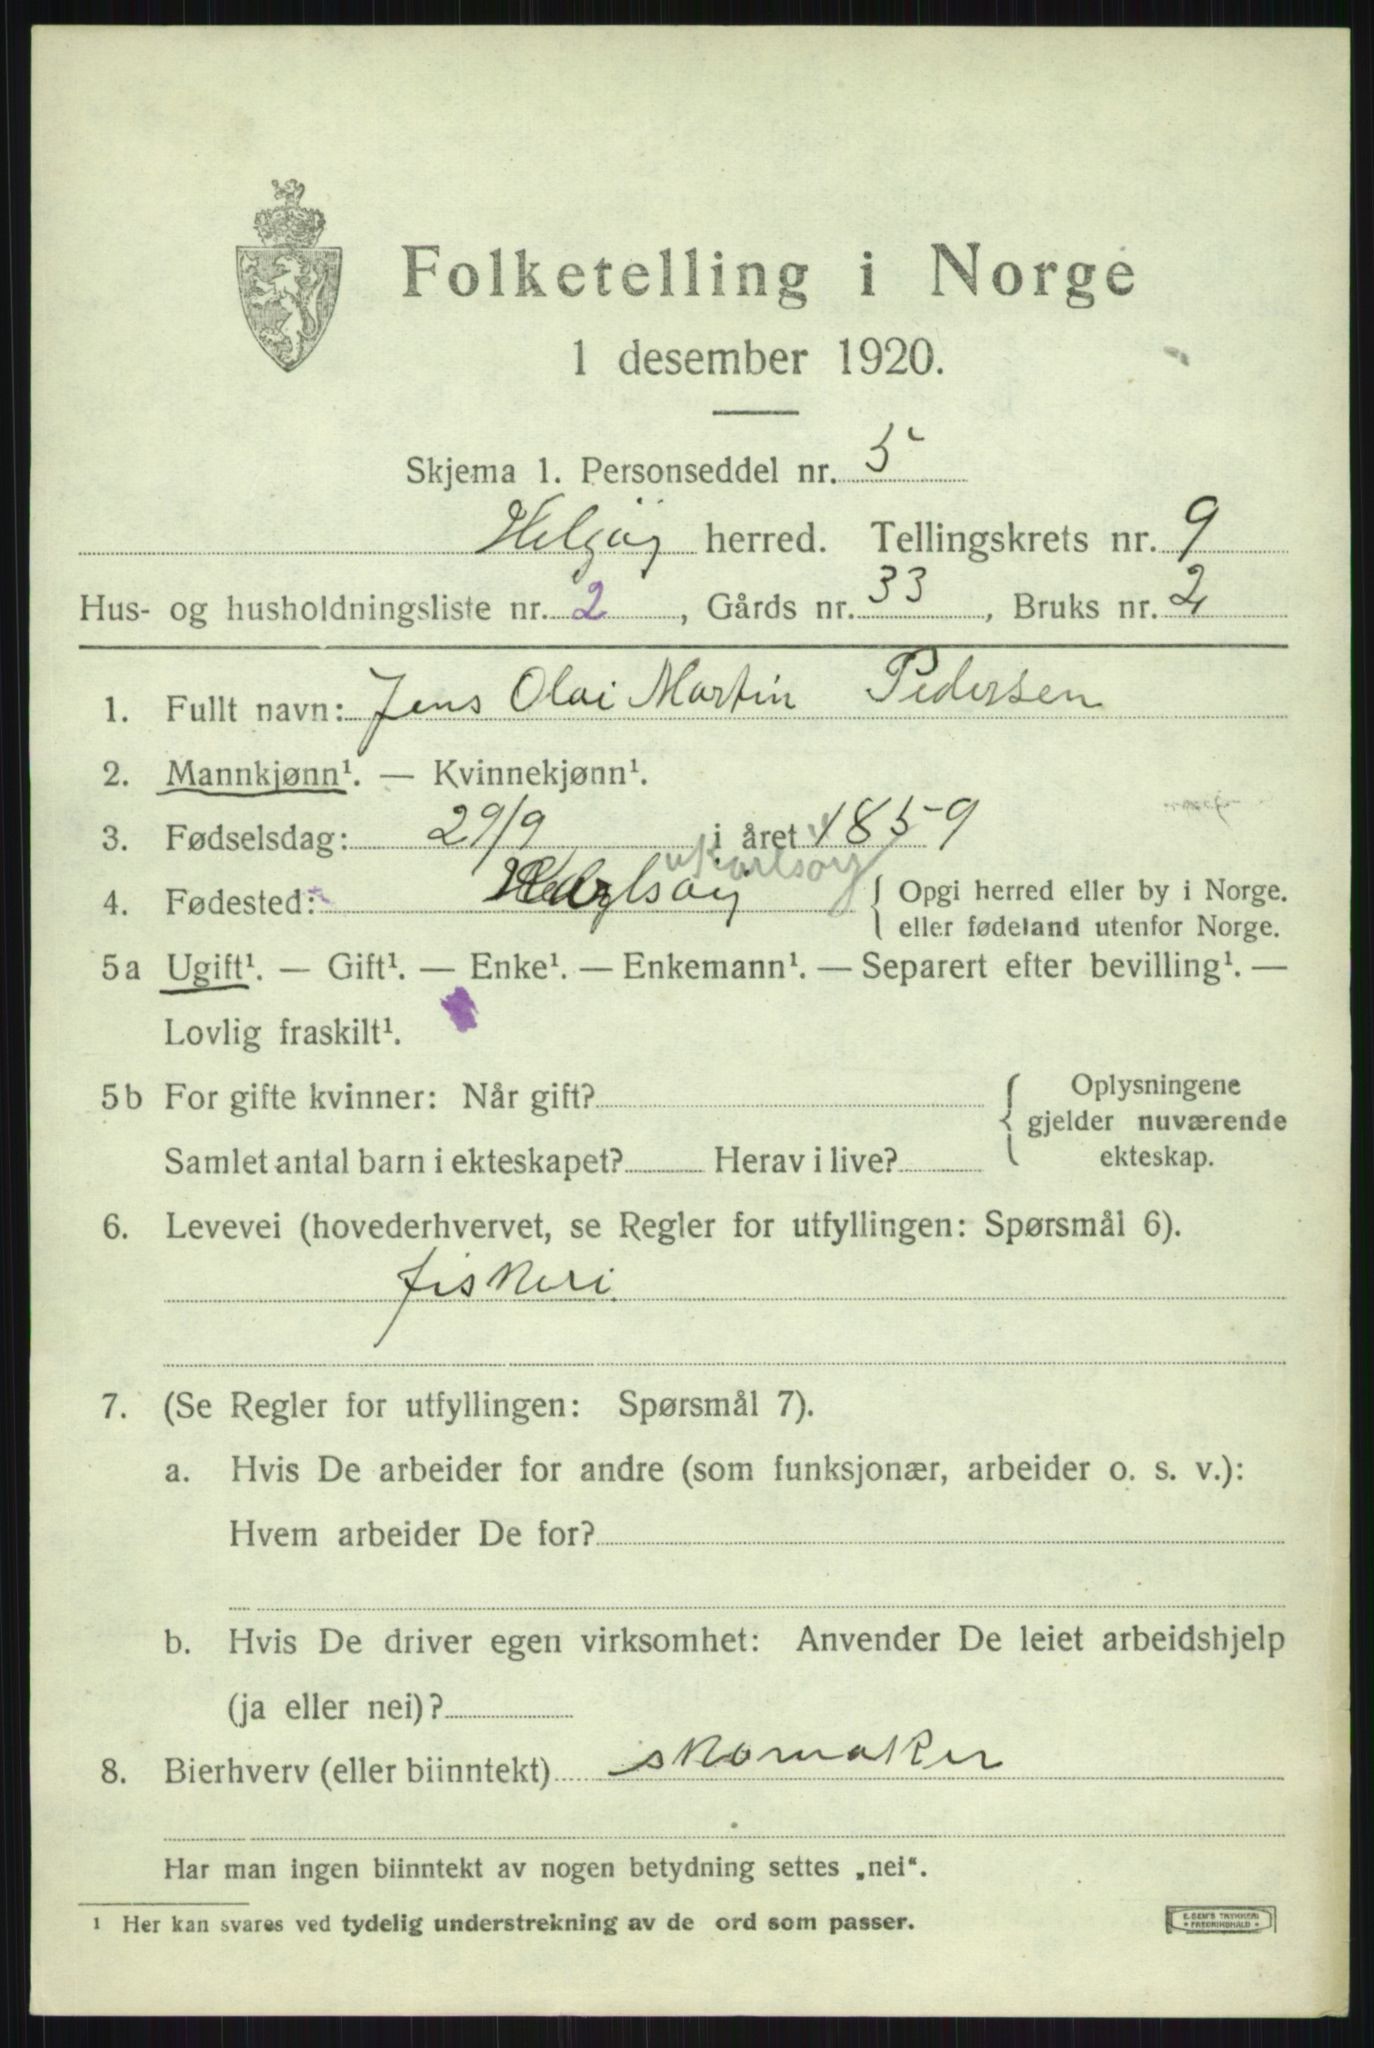 Folketelling i Norge
1 desember 1920.
Skjema 1. Personseddel nr. 5
Helgøy herred. Tellingskrets nr. 9
Hus- og husholdningsliste nr. 2, Gårds nr. 33, Bruks nr. 2
1. Fullt navn: Jens Olai Martin Pedersen
2. Mannkjønn¹. — Kvinnekjønn¹.
3. Fødselsdag: 29/9 i året 1859
Karlsøy
4. Fødested: Karlsøy { Opgi herred eller by i Norge.
eller fødeland utenfor Norge.
5a Ugift¹. — Gift¹. — Enke¹. — Enkemann¹. — Separert efter bevilling¹. —
Lovlig fraskilt¹.
5b For gifte kvinner: Når gift? { Oplysningene
gjelder nuværende
Samlet antal barn i ekteskapet? Herav i live? ekteskap.
6. Levevei (hovederhvervet, se Regler for utfyllingen: Spørsmål 6).
fiskeri
7. (Se Regler for utfyllingen: Spørsmål 7).
a. Hvis De arbeider for andre (som funksjonær, arbeider o. s. v.):
Hvem arbeider De for?
b. Hvis De driver egen virksomhet: Anvender De leiet arbeidshjelp
(ja eller nei)?
8. Bierhverv (eller biinntekt) skomaker
Har man ingen biinntekt av nogen betydning settes „nei“.
1 Her kan svares ved tydelig understrekning av de ord som passer.
E. SEM'S TRYKKERI
* FREDRIKSHALD *